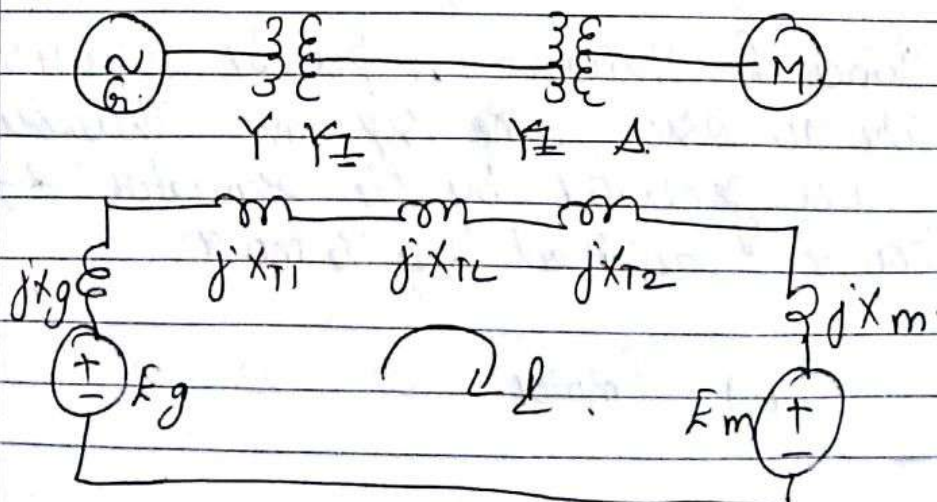 ~
G. M
Y Y Y Δ
jXg jXT1 jXTL jXT2 jXm
+
-
Eg I. Em
+
-